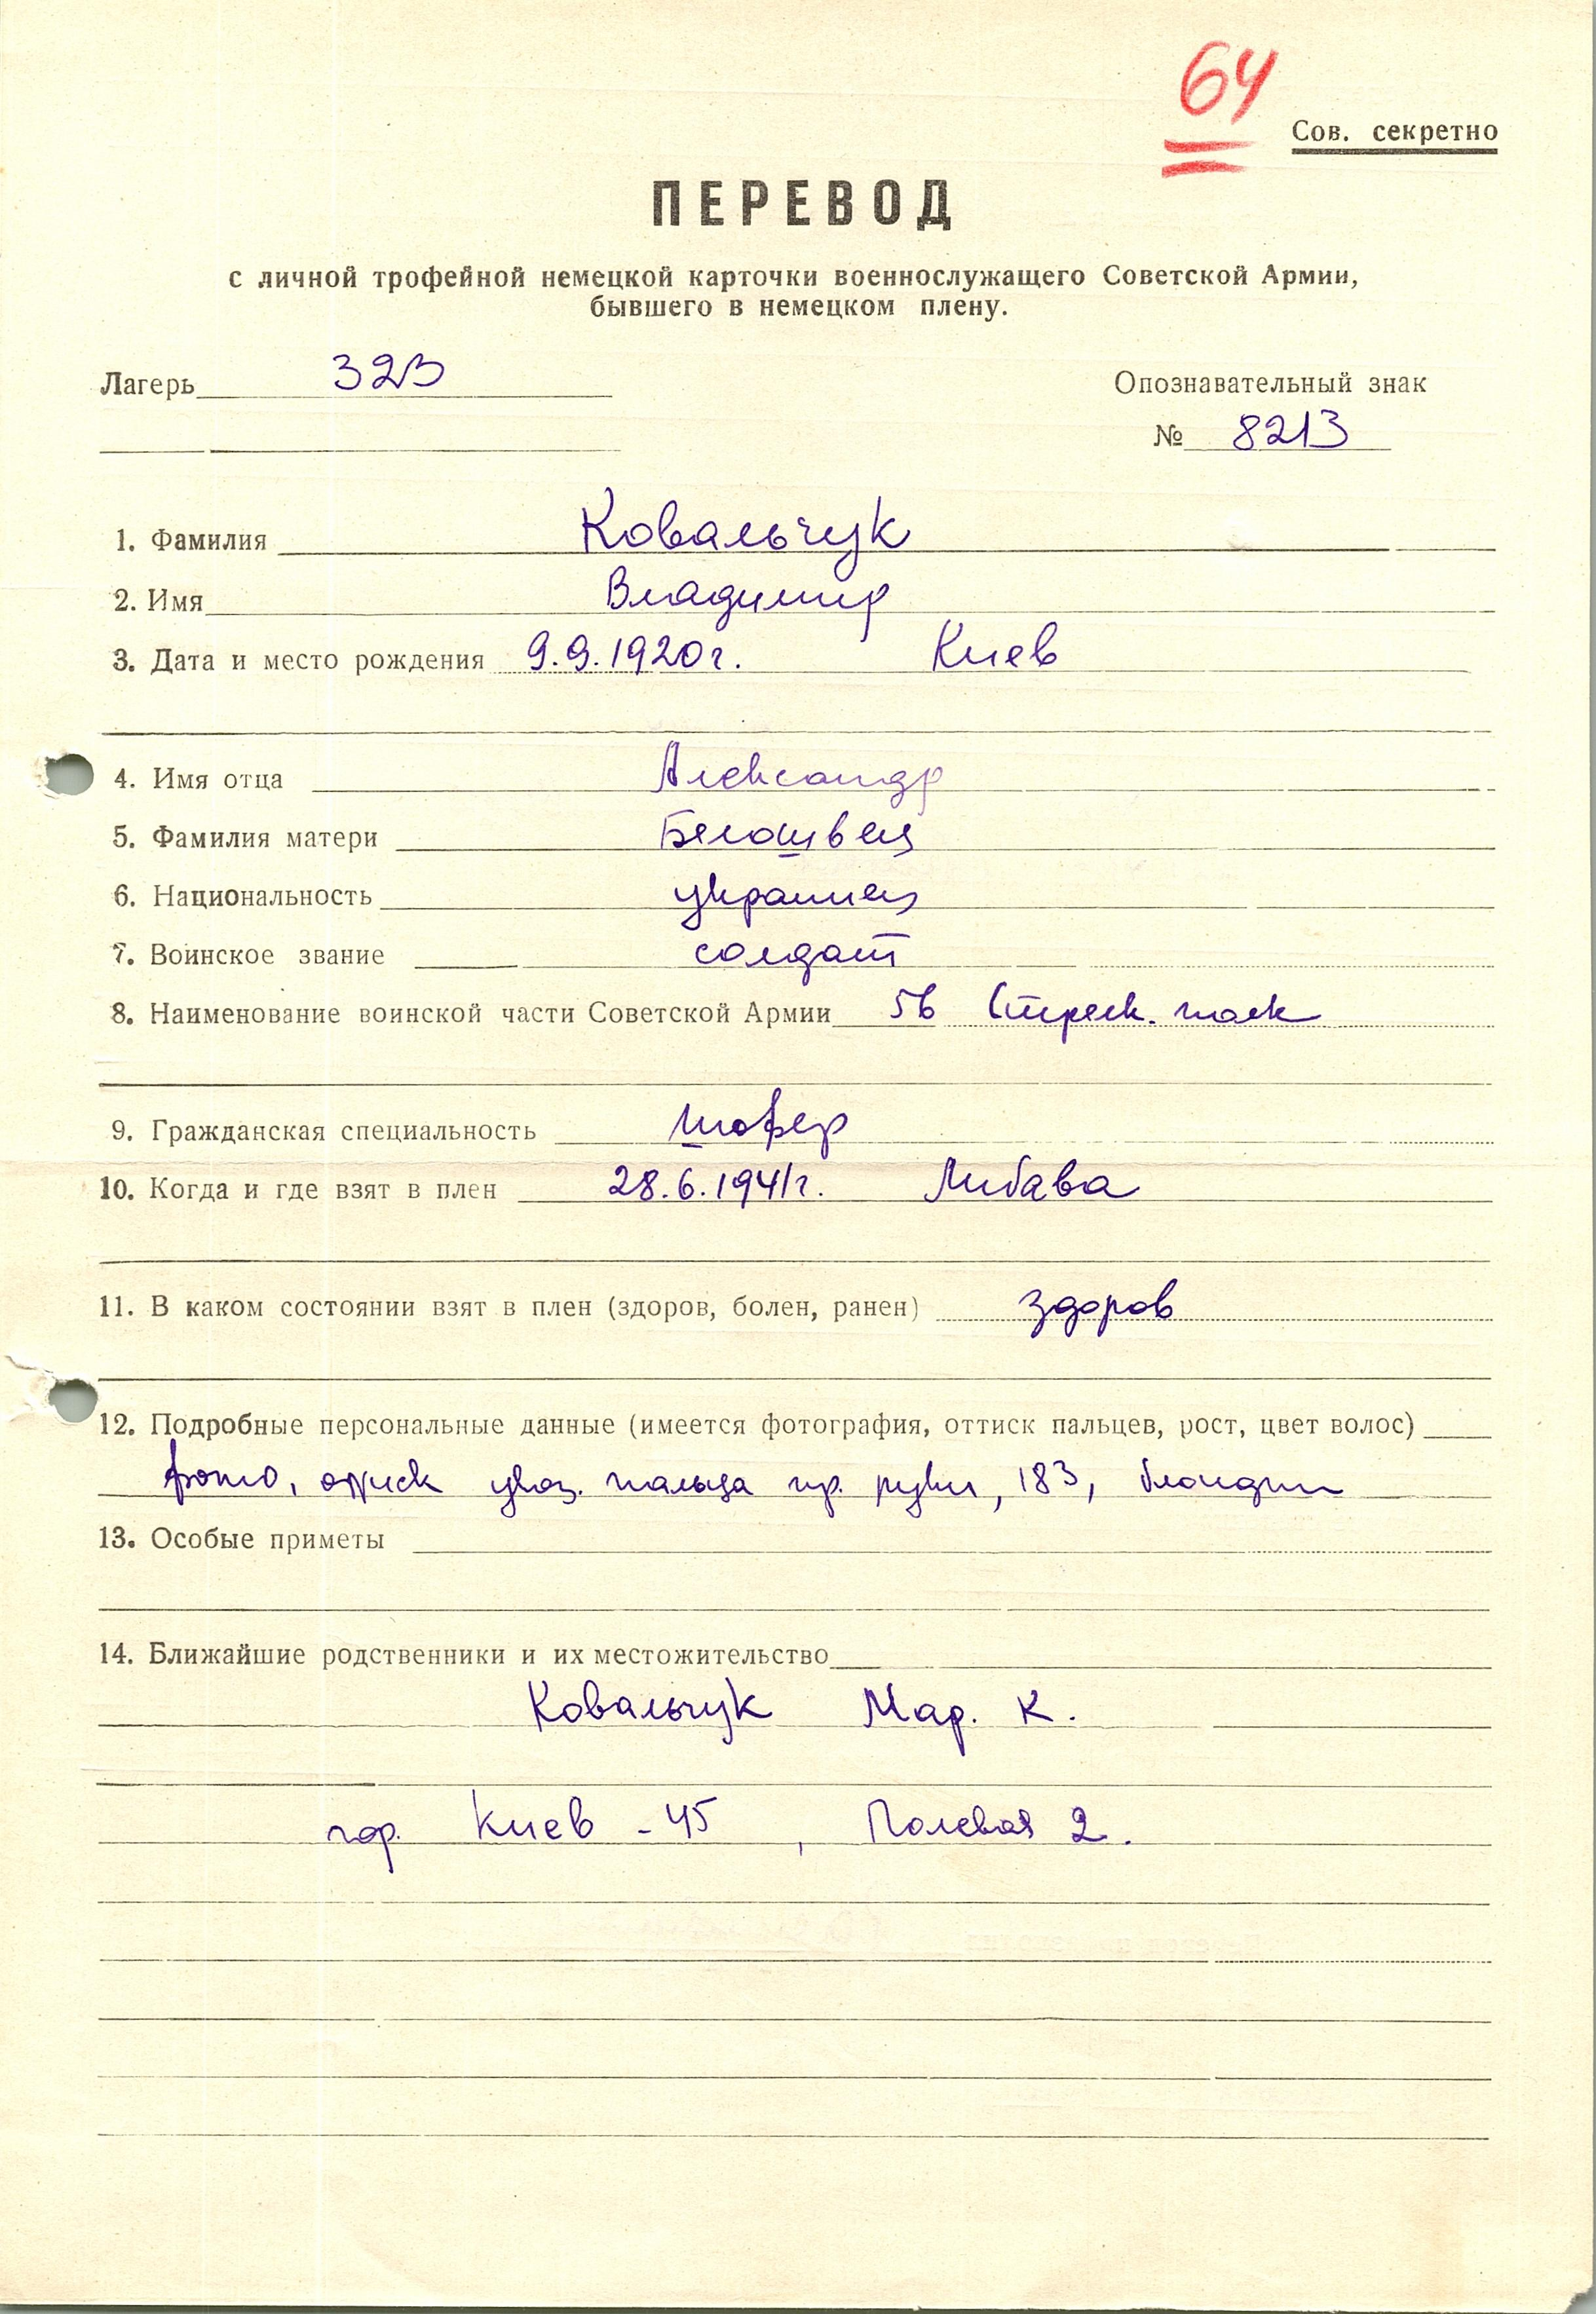 64
Сов. секретно
ПЕРЕВОД
с личной трофейной немецкой карточки военнослужащего Советской Армии,
бывшего в немецком плену.
Лагерь 323
Опознавательный знак
№ 8213
1. Фамилия Ковальчук
2. Имя Владимир
3. Дата и место рождения 9.9.1920г. Киев
4. Имя отца Александр
5. Фамилия матери Белошвец
6. Национальность украинец
7. Воинское звание солдат
8. Наименование воинской части Советской Армии 56 Стрелк. полк
9. Гражданская специальность шофер
10. Когда и где взят в плен 28.6.1941г. Либава
11. В каком состоянии взят в плен (здоров, болен, ранен) здоров
12. Подробные персональные данные (имеется фотография, оттиск пальцев, рост, цвет волос)
фото, оттиск указ. пальца пр. руки, 183, блондин
13. Особые приметы
14. Ближайшие родственники и их местожительство
Ковальчук Мар. К.
гор. Киев - 45, Полевая 2.